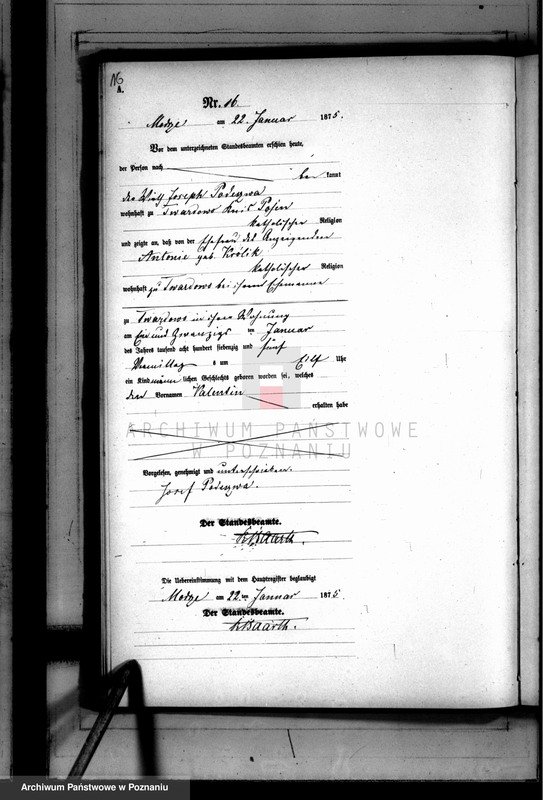 16
A.
Nr. 16.
Modze am 22 Januar 1875.
Vor dem unterzeichneten Standesbeamten erschien heute,
der Person nach
be kannt
der Wirth Joseph Podeszwa
wohnhaft zu Twardowo Kreis Posen
katholischer Religion
und zeigte an, daß von der Ehefrau des Anzeigenden
Antonie geb. Królik
katholischer Religion
wohnhaft zu Twardowo bei ihrem Ehemanne
zu Twardowo in ihrer Wohnung
am Ein und Zwanzigs ten Januar
des Jahres tausend acht hundert siebenzig und fünf
Vormittag s um Elf Uhr
ein Kind männ lichen Geschlechts geboren worden sei, welches
den Vornamen Valentin
erhalten habe
ARCHIWUM PAŃSTWOWE
W POZNANIU
Vorgelesen, genehmigt und unterschrieben.
Josef Podeszwa.
Der Standesbeamte.
Die Uebereinstimmung mit dem Hauptregister beglaubigt
Modze am 22 ten Januar 1875.
Der Standesbeamte.
Archiwum Państwowe w Poznaniu